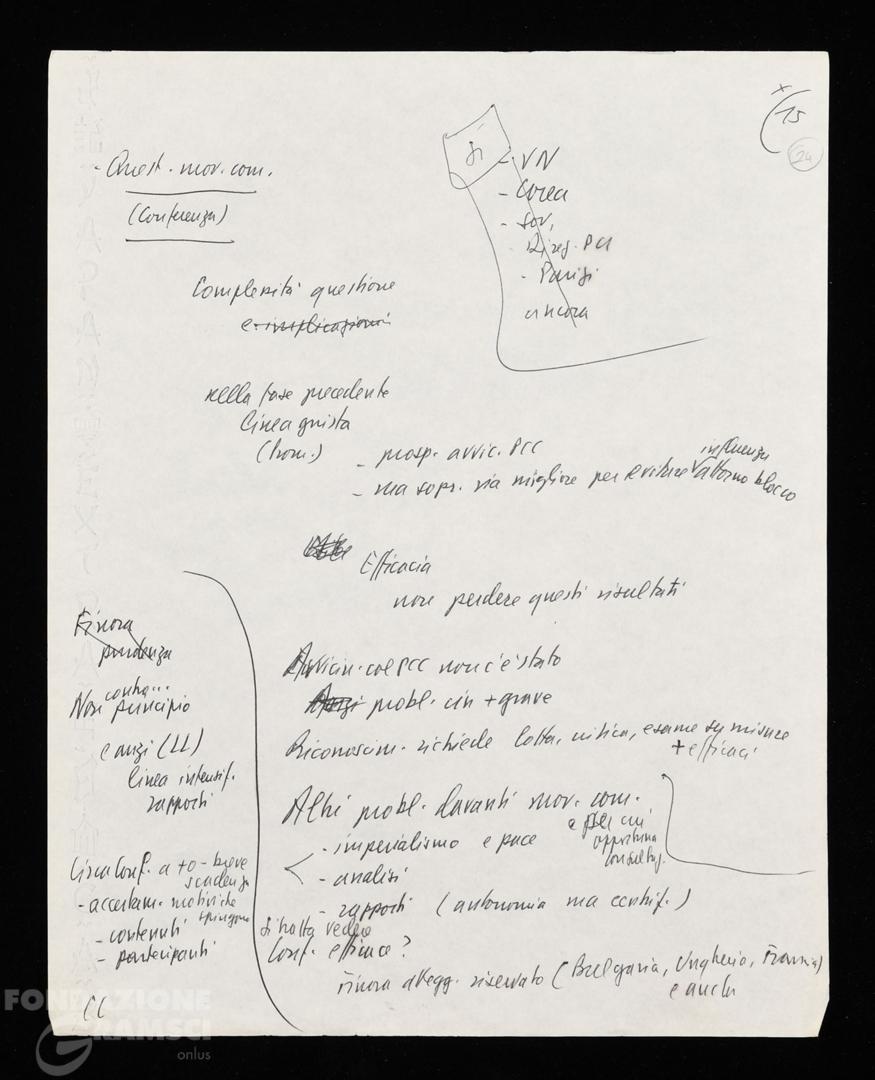 15
24
- Quest. mov. com.
(Conferenza)
sì
- VN
- Corea
- Sov.
Direz. PCI
- Parigi
ancora
Complessità questione
e implicazioni
nella fase precedente
linea giusta
(Prom.)
- prosp. avvic. PCC
- ma sopr. via migliore per evitare influenza attorno blocco
Efficacia
non perdere questi risultati
Finora
prudenza
contra...
Non principio
e anzi (LL)
linea intensif.
rapporti
Circa Conf. a + o - breve
scadenza
- accertam. motivi che
spingono
- contenuti
- partecipanti
CC
Avvicin. col PCC non c'è stato
Anzi probl. cin + grave
Riconoscim. richiede lotta, critica, esame su misure
+ efficaci
Altri probl. davanti mov. com.
e per cui
opportuna
consultaz.
- imperialismo e pace
- analisi
- rapporti (autonomia ma contrif.)
Si tratta vedere
Conf. efficace?
Finora attegg. riservato (Bulgaria, Ungheria, Francia)
e anche
FONDAZIONE
GRAMSCI
onlus